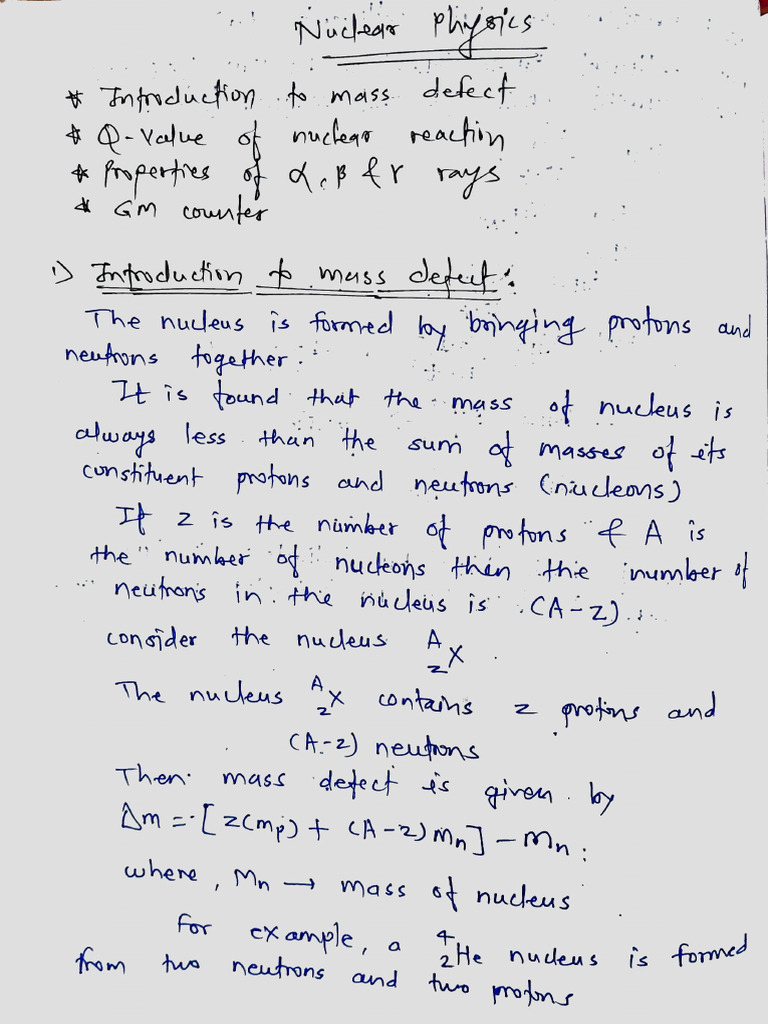 Nuclear Physics
* Introduction to mass defect
* Q-value of nuclear reaction
* Properties of α, β & γ rays
* GM counter
1) Introduction to mass defect:
The nucleus is formed by bringing protons and
neutrons together.
It is found that the mass of nucleus is
always less than the sum of masses of its
constituent protons and neutrons (nucleons)
If Z is the number of protons & A is
the number of nucleons then the number of
neutrons in the nucleus is (A-Z)
consider the nucleus ᴬ_Z X
The nucleus ᴬ_Z X contains Z protons and
(A-Z) neutrons
Then mass defect is given by
Δm = [Z(mₚ) + (A-Z)mₙ] - Mₙ
where, Mₙ → mass of nucleus
For example, a ⁴₂He nucleus is formed
from two neutrons and two protons